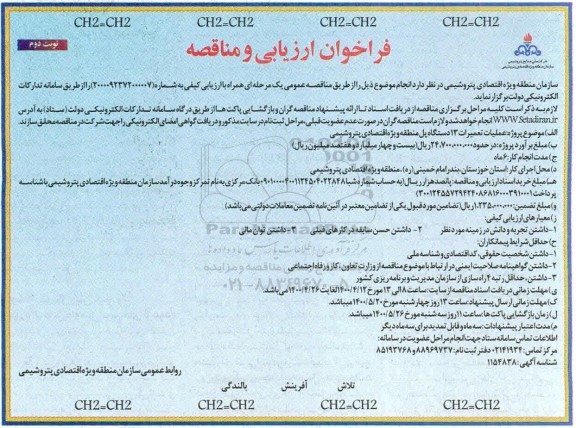 CH2=CH2 CH2=CH2 CH2=CH2 CH2=CH2
نوبت دوم
فراخوان ارزیابی و مناقصه
سازمان منطقه ویژه اقتصادی پتروشیمی در نظر دارد انجام موضوع ذیل را از طریق مناقصه عمومی یک مرحله ای همراه با ارزیابی کیفی به شماره (۲۰۰۰۰۹۲۳۷۲۰۰۰۰۰۷) را از طریق سامانه تدارکات
الکترونیکی دولت برگزار نماید.
لازم به ذکر است کلیه مراحل برگزاری مناقصه از دریافت اسناد تا ارائه پیشنهاد مناقصه گران و بازگشایی پاکت ها از طریق درگاه سامانه تدارکات الکترونیکی دولت (ستاد) به آدرس
WWW.Setadiran.ir انجام خواهد شد و لازم است مناقصه گران در صورت عدم عضویت قبلی، مراحل ثبت نام در سایت مذکور و دریافت گواهی امضای الکترونیکی را جهت شرکت در مناقصه محقق سازند.
الف) موضوع پروژه: عملیات تعمیرات ۱۳ دستگاه پل منطقه ویژه اقتصادی پتروشیمی
ب) مبلغ برآورد پروژه: در حدود ۲۴،۷۰۰،۰۰۰،۰۰۰ ریال (بیست و چهار میلیارد و هفتصد میلیون ریال)
ج) مدت انجام کار: ۶ ماه
د) محل اجرای کار: استان خوزستان، بندر امام خمینی (ره)، منطقه ویژه اقتصادی پتروشیمی
هـ) مبلغ خرید اسناد ارزیابی و مناقصه: پانصد هزار ریال (به حساب شماره شبا بانک مرکزی به نام تمرکز وجوه درآمد سازمان منطقه ویژه اقتصادی پتروشیمی با شناسه
پرداخت
و) مبلغ تضمین: ۱،۲۳۵،۰۰۰،۰۰۰ ریال (تضامین مورد قبول یکی از تضامین معتبر در آئین نامه تضمین معاملات دولتی می باشد)
ز) معیارهای ارزیابی کیفی:
۱- داشتن تجربه و دانش در زمینه مورد نظر ۲- داشتن حسن سابقه در کارهای قبلی ۳- داشتن توان مالی
ح) حداقل شرایط پیمانکاران:
۱- داشتن شخصیت حقوقی، کد اقتصادی و شناسه ملی
۲- داشتن گواهینامه صلاحیت ایمنی در ارتباط با موضوع مناقصه از وزارت تعاون، کار و رفاه اجتماعی
۳- داشتن، حداقل رتبه ۴ راه سازی از سازمان مدیریت و برنامه ریزی کشور
ی) مهلت زمانی دریافت اسناد مناقصه از سایت: ساعت ۸ الی ۱۳ مورخ ۱۴۰۰/۴/۱۲ لغایت ۱۴۰۰/۴/۲۶ می باشد.
ک) مهلت زمانی ارسال پیشنهاد: ساعت ۱۳ روز چهارشنبه مورخ ۱۴۰۰/۵/۲۰ میباشد.
ل) زمان بازگشایی پاکت ها: ساعت ۱۱ روز سه شنبه مورخ ۱۴۰۰/۵/۲۶ میباشد.
م) مدت اعتبار پیشنهادات: سه ماه و قابل تمدید برای سه ماه دیگر
اطلاعات تماس سامانه ستاد جهت انجام مراحل عضویت در سامانه:
مرکز تماس: ۰۲۱۴۱۹۳۴ دفتر ثبت نام: ۸۸۹۶۹۷۳۷ و ۸۵۱۹۳۷۶۸
شناسه آگهی: ۱۱۵۴۸۳۸
روابط عمومی سازمان منطقه ویژه اقتصادی پتروشیمی
تلاش آفرینش بالندگی
CH2=CH2 CH2=CH2 CH2=CH2 CH2=CH2